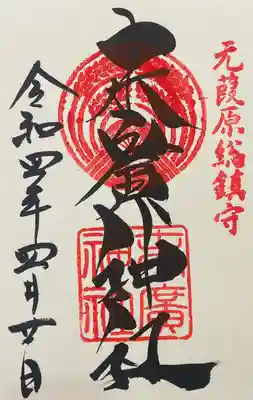 元葭原総鎮守
末廣神社
末廣
神社
令和四年四月廿日